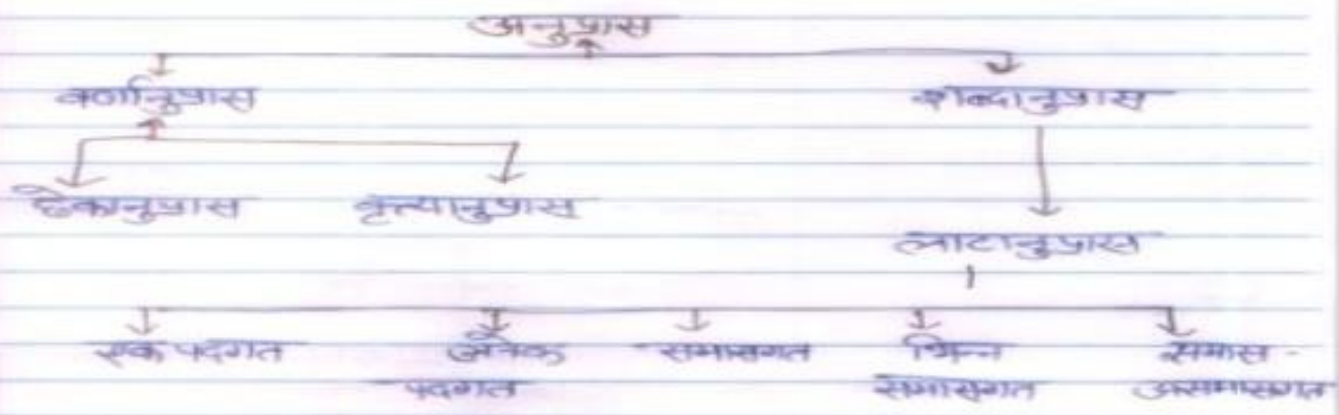 अनुप्रास
वर्णानुप्रास शब्दानुप्रास
छेकानुप्रास वृत्त्यानुप्रास
लाटानुप्रास
एक पदगत अनेक समासगत भिन्न समास-
पदगत समासगत असमासगत